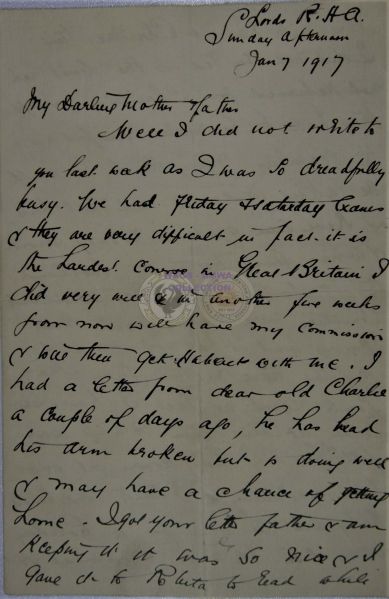 St Lords R.H.A.
Sunday afternoon
Jan 7 1917
My Darling Mother & father
Well I did not write to
you last week as I was so dreadfully
busy. We had Friday & Saturday Exams
& they are very difficult in fact it is
the hardest course in Great Britain I
did very well & in another five weeks
from now will have my Commission
& will then get Hubert with me. I
had a letter from dear old Charlie
a couple of days ago, he has had
his arm broken but is doing well
& may have a chance of getting
home. I got your letter father & am
keeping it it was so nice & I
gave it to to read while